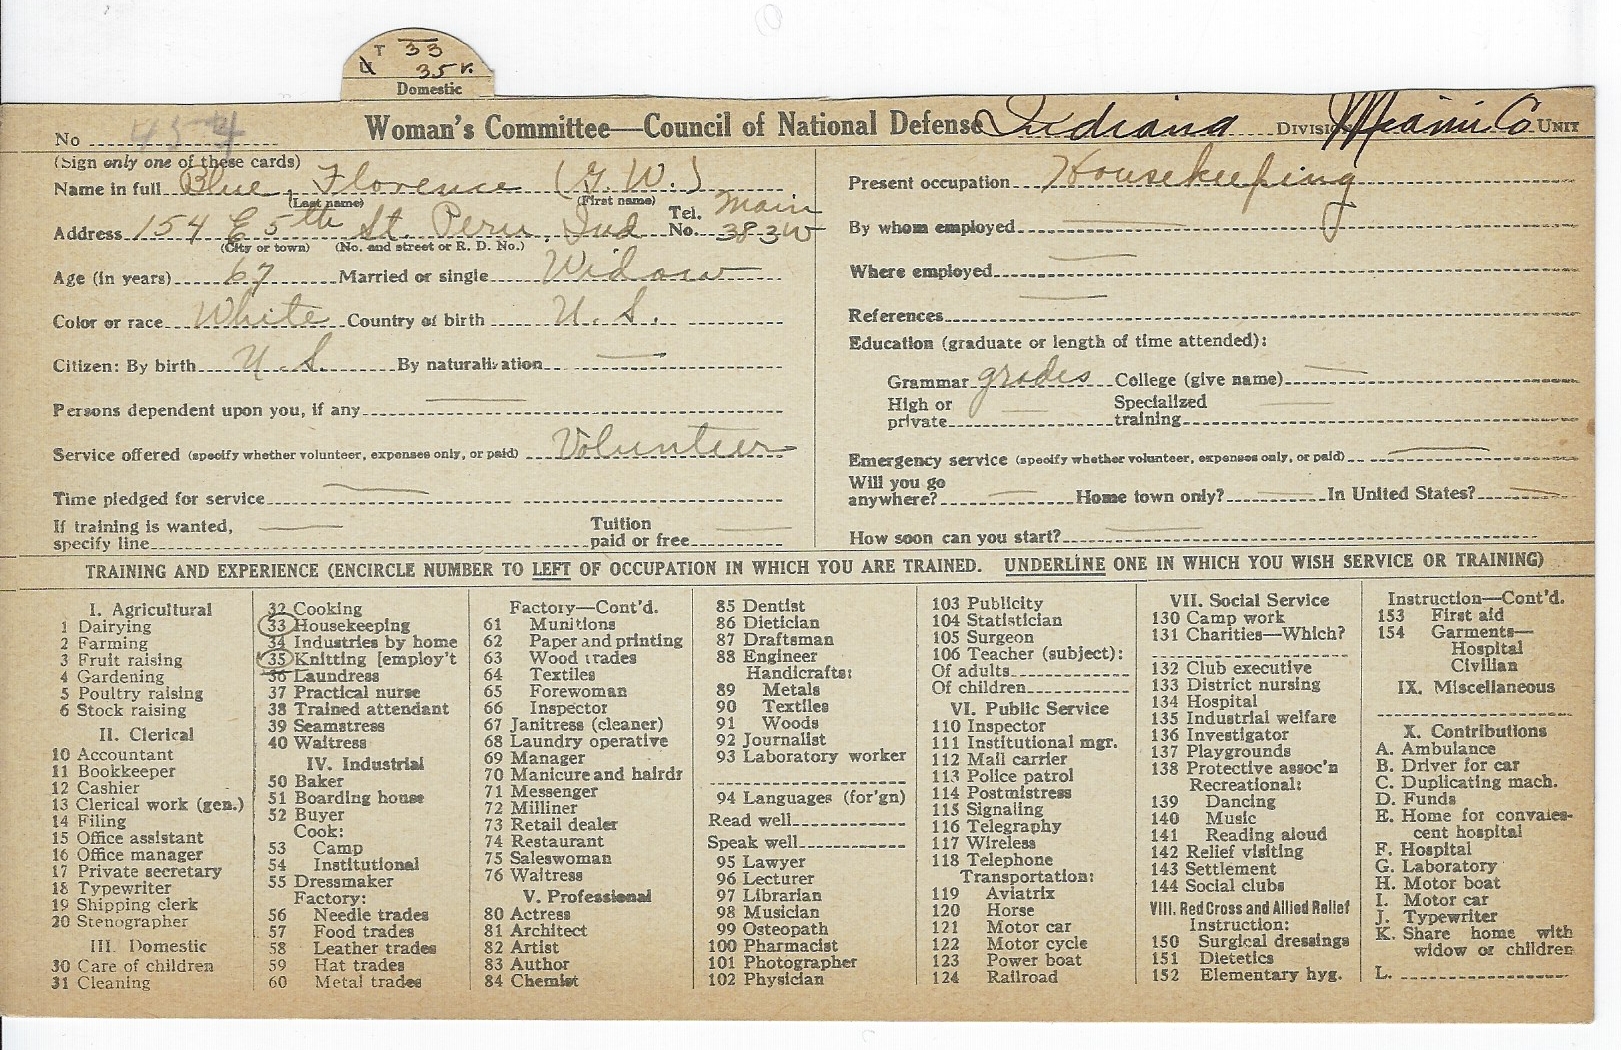 T 33
35 v.
Domestic
No 454
Woman's Committee—Council of National Defense Indiana Division Miami Co Unit
(Sign only one of these cards)
Name in full Blue, Florence (G.W.)
(Last name) (First name)
Address 154 E 5th St. Peru, Ind Tel. No. Main 383W
(City or town) (No. and street or R. D. No.)
Age (in years) 67 Married or single Widow
Color or race White Country of birth U.S.
Citizen: By birth U.S. By naturalization —
Persons dependent upon you, if any —
Service offered (specify whether volunteer, expenses only, or paid) Volunteer
Time pledged for service —
If training is wanted, specify line — Tuition paid or free —
Present occupation Housekeeping
By whom employed —
Where employed —
References —
Education (graduate or length of time attended):
Grammar grades College (give name) —
High or private — Specialized training —
Emergency service (specify whether volunteer, expenses only, or paid) —
Will you go anywhere? — Home town only? — In United States? —
How soon can you start? —
TRAINING AND EXPERIENCE (ENCIRCLE NUMBER TO LEFT OF OCCUPATION IN WHICH YOU ARE TRAINED. UNDERLINE ONE IN WHICH YOU WISH SERVICE OR TRAINING)
I. Agricultural
1 Dairying
2 Farming
3 Fruit raising
4 Gardening
5 Poultry raising
6 Stock raising
II. Clerical
10 Accountant
11 Bookkeeper
12 Cashier
13 Clerical work (gen.)
14 Filing
15 Office assistant
16 Office manager
17 Private secretary
18 Typewriter
19 Shipping clerk
20 Stenographer
III. Domestic
30 Care of children
31 Cleaning
32 Cooking
33 Housekeeping
34 Industries by home
35 Knitting [employ't
36 Laundress
37 Practical nurse
38 Trained attendant
39 Seamstress
40 Waitress
IV. Industrial
50 Baker
51 Boarding house
52 Buyer
Cook:
53 Camp
54 Institutional
55 Dressmaker
Factory:
56 Needle trades
57 Food trades
58 Leather trades
59 Hat trades
60 Metal trades
Factory—Cont'd.
61 Munitions
62 Paper and printing
63 Wood trades
64 Textiles
65 Forewoman
66 Inspector
67 Janitress (cleaner)
68 Laundry operative
69 Manager
70 Manicure and hairdr
71 Messenger
72 Milliner
73 Retail dealer
74 Restaurant
75 Saleswoman
76 Waitress
V. Professional
80 Actress
81 Architect
82 Artist
83 Author
84 Chemist
85 Dentist
86 Dietician
87 Draftsman
88 Engineer
Handicrafts:
89 Metals
90 Textiles
91 Woods
92 Journalist
93 Laboratory worker
94 Languages (for'gn)
Read well
Speak well
95 Lawyer
96 Lecturer
97 Librarian
98 Musician
99 Osteopath
100 Pharmacist
101 Photographer
102 Physician
103 Publicity
104 Statistician
105 Surgeon
106 Teacher (subject):
Of adults
Of children
VI. Public Service
110 Inspector
111 Institutional mgr.
112 Mail carrier
113 Police patrol
114 Postmistress
115 Signaling
116 Telegraphy
117 Wireless
118 Telephone
Transportation:
119 Aviatrix
120 Horse
121 Motor car
122 Motor cycle
123 Power boat
124 Railroad
VII. Social Service
130 Camp work
131 Charities—Which?
132 Club executive
133 District nursing
134 Hospital
135 Industrial welfare
136 Investigator
137 Playgrounds
138 Protective assoc'n
Recreational:
139 Dancing
140 Music
141 Reading aloud
142 Relief visiting
143 Settlement
144 Social clubs
VIII. Red Cross and Allied Relief
Instruction:
150 Surgical dressings
151 Dietetics
152 Elementary hyg.
Instruction—Cont'd.
153 First aid
154 Garments—
Hospital
Civilian
IX. Miscellaneous
X. Contributions
A. Ambulance
B. Driver for car
C. Duplicating mach.
D. Funds
E. Home for convales-
cent hospital
F. Hospital
G. Laboratory
H. Motor boat
I. Motor car
J. Typewriter
K. Share home with
widow or children
L.